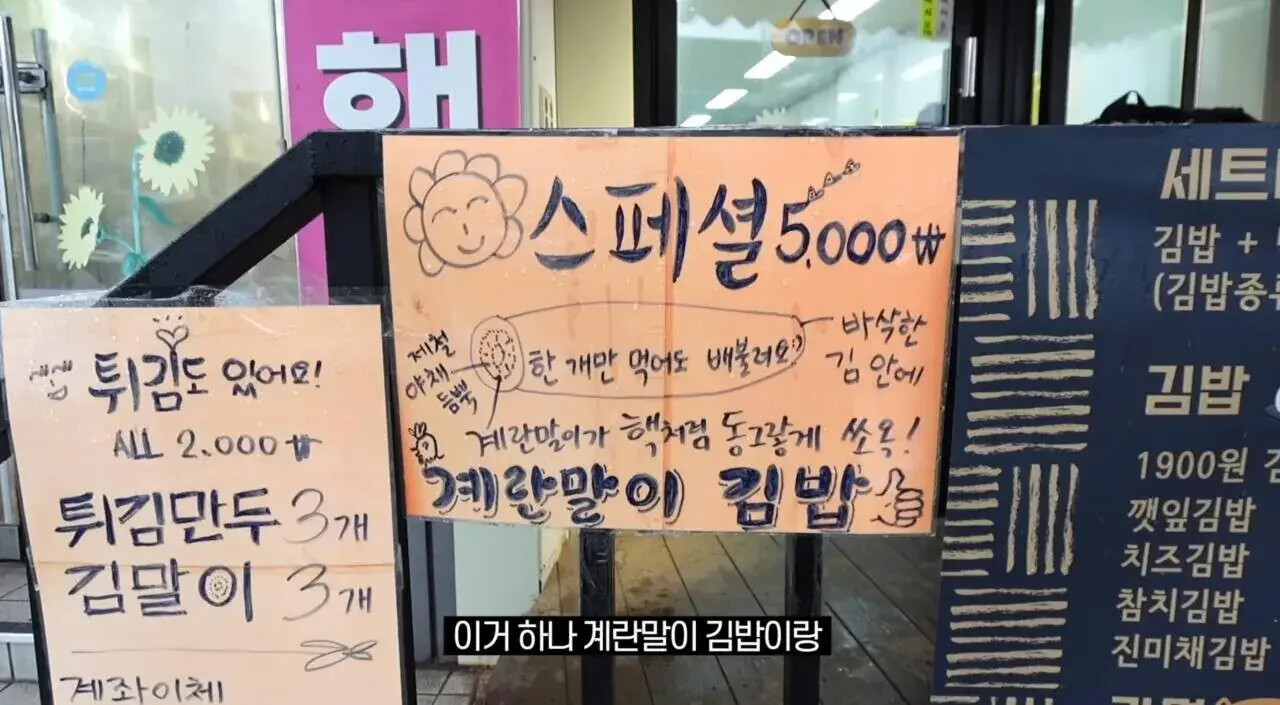 해
OPEN
스페셜 5.000₩
제철
야채
듬뿍
한 개만 먹어도 배불러요:)
바삭한
김 안에
계란말이가 핵처럼 동그랗게 쏘옥!
계란말이 김밥
튀김도 있어요!
ALL 2.000₩
튀김만두 3개
김말이 3개
계좌이체
세트
김밥 +
(김밥종
김밥
1900원
깻잎김밥
치즈김밥
참치김밥
진미채김밥
이거 하나 계란말이 김밥이랑